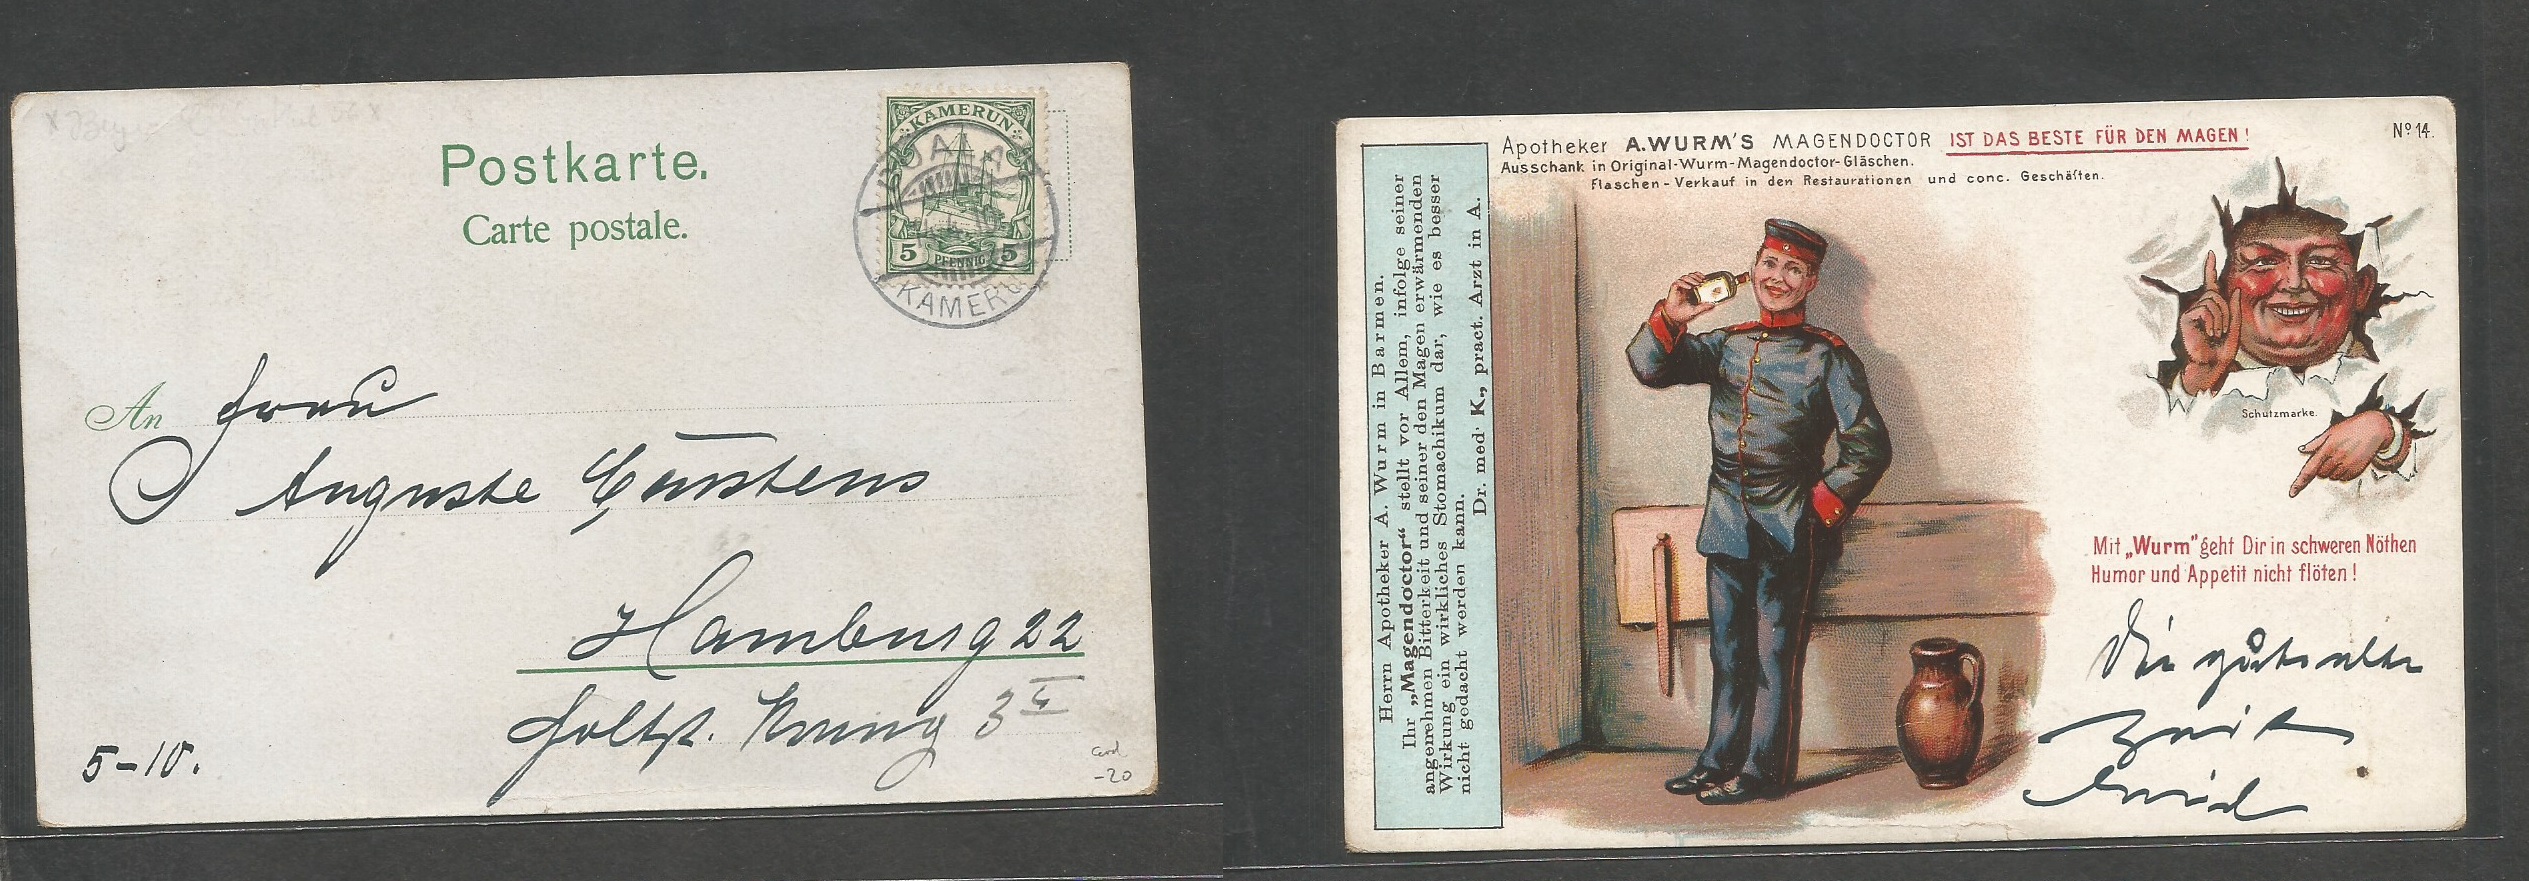 Postkarte.
Carte postale.
KAMERUN
5 PFENNIG 5
DUALA
KAMERUN
An Frau
Auguste Carstens
Hamburg 22
3
5-10.
card
-20
Apotheker A. WURM'S MAGENDOCTOR IST DAS BESTE FÜR DEN MAGEN!
Nº 14.
Ausschank in Original-Wurm-Magendoctor-Gläschen.
Flaschen-Verkauf in den Restaurationen und conc. Geschäften.
Herrn Apotheker A. Wurm in Barmen.
Ihr „Magendoctor“ stellt vor Allem, infolge seiner
angenehmen Bitterkeit und seiner den Magen erwärmenden
Wirkung ein wirkliches Stomachikum dar, wie es besser
nicht gedacht werden kann.
Dr. med. K., pract. Arzt in A.
Schutzmarke.
Mit „Wurm“ geht Dir in schweren Nöthen
Humor und Appetit nicht flöten!